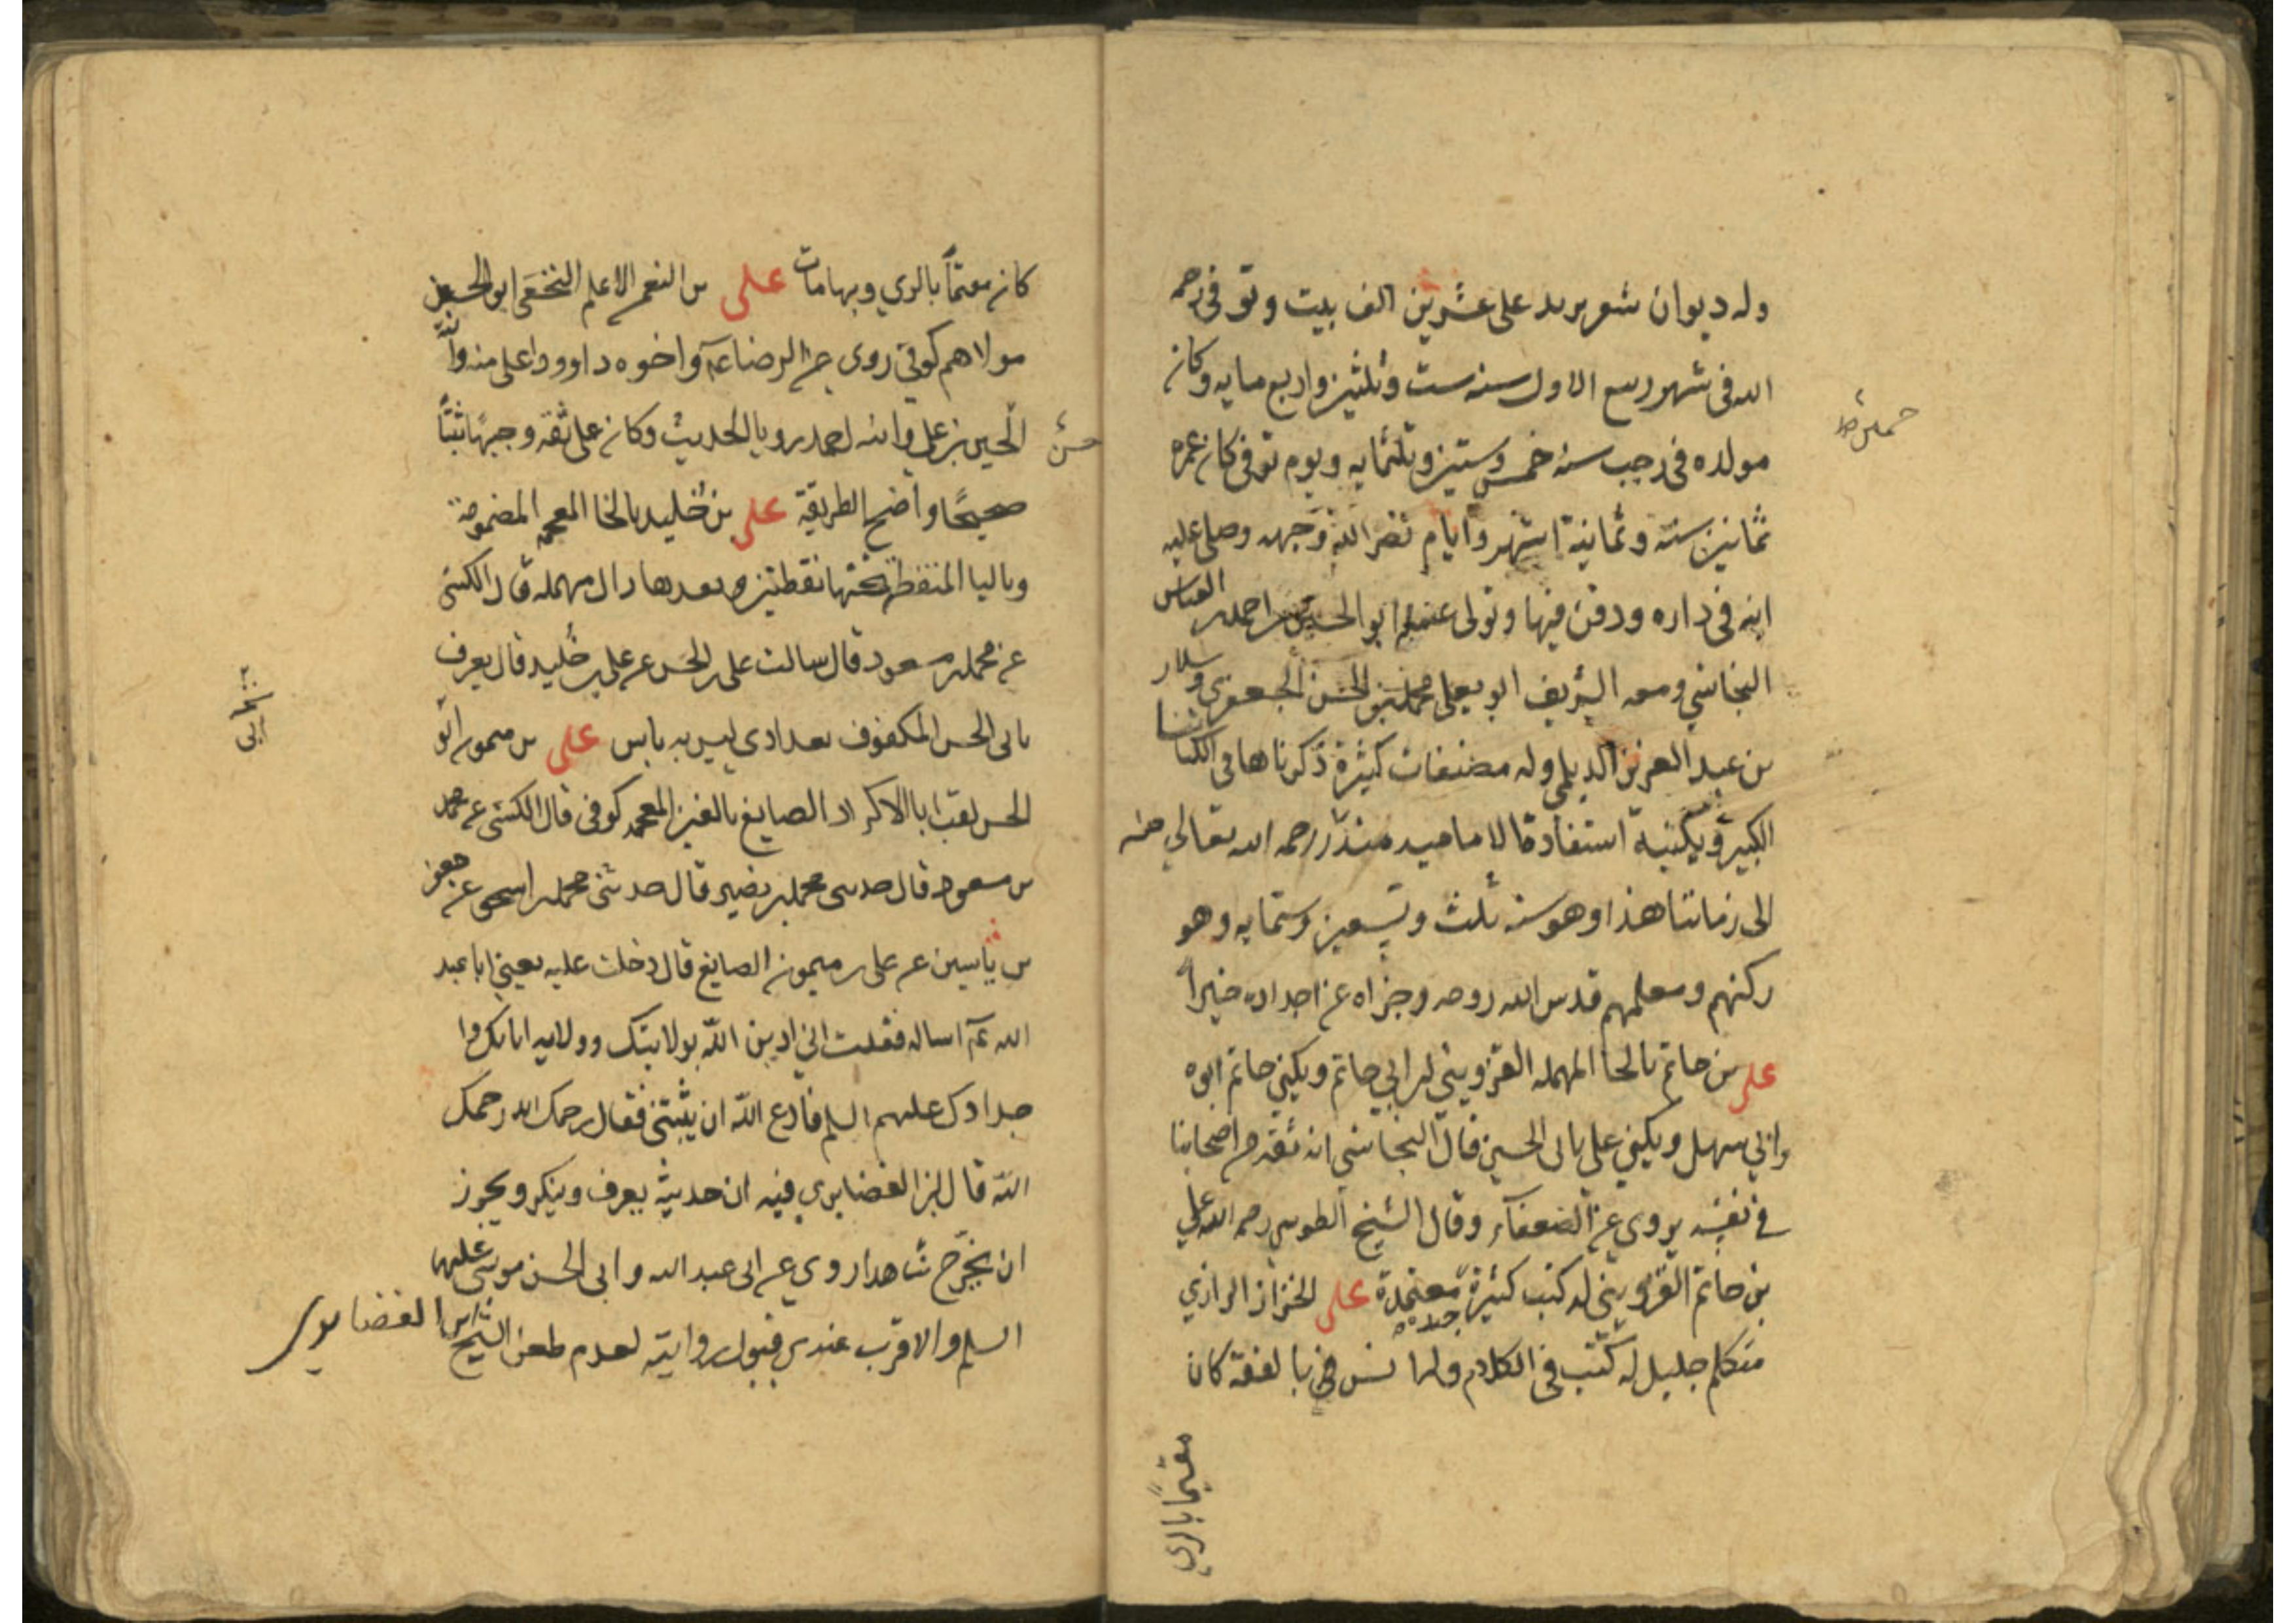 وله ديوان شعر يزيد على عشرين الف بيت وتوفى رحمه
الله فى شهر ربيع الاول سنه ست وثلثين واربع مايه وكان
مولده فى رجب سنه خمس وستين وثلثمايه ويوم توفى كان عمره
ثمانين سنة وثمانية اشهر وايام نضر الله وجهه وصلى عليه
ابنه فى داره ودفن فيها وتولى غسله ابو الحسين احمد بن العباس
النجاشي ومعه الشريف ابو يعلى محمد بن الحسن الجعفري وسلار
بن عبد العزيز الديلمي وله مصنفات كثيرة ذكرناها في كتابنا
الكبير وبكتبه استفادة الامامية منذ زمنه رحمه الله تعالي
الى زماننا هذا وهو سنه ثلث وتسعين وستمايه وهو
ركنهم ومعلمهم قدس الله روحه وجزاه عن اجداده خيرا
علي بن حاتم بالحا المهمله القزويني ابن ابي حاتم ويكني حاتم ابوه
بابي سهل ويكني علي بابى الحسين قال النجاشي انه ثقة من اصحابنا
في نفسه يروي عن الضعفاء وقال الشيخ الطوسي رحمه الله علي
بن حاتم القزويني له كتب كثيرة جيده معتمدة علي الخزاز الرازي
متكلم جليل له كتب فى الكلام وله انس في بالفقة كان
مقيمًا بالري
خمس
كان مقيمًا بالري وبها مات علي بن النعمن الاعلم النخعي ابو الحسن
مولاهم كوفي روى عن الرضا ع واخوه داوود اعلى منه وابنه
الحسين بن علي وابنه احمد رويا الحديث وكان علي ثقه وجيهًا ثبتًا
صحيحًا واضح الطريقة علي بن خليد بالخا المعجمه المضمومة
وباليا المنقطة تحتها نقطتين وبعدها دال مهمله قال الكشي
عن محمد بن مسعود قال سالت على بن الحسن عن على بن خليد قال يعرف
بابى الحسن المكفوف بغدادي ليس به باس علي بن ميمون ابو
الحسن لقب ابا الاكراد الصايغ بالغين المعجمه كوفي قال الكشي عن محمد
بن مسعود قال حدثني محمد بن نصير قال حدثني محمد بن اسحق عن جعفر
بن بشير عن على بن ميمون الصايغ قال دخلت عليه يعني ابا عبد
الله ع اساله فقلت اني ادين الله بولايتك وولايه ابائك وا
جدادك عليهم السلم فادع الله ان يثبتني فقال رحمك الله رحمك
الله قال ابن الغضايري فيه ان حديثه يعرف وينكر ويجوز
ان يخرج شاهدا روي عن ابى عبد الله وابى الحسن موسى عليهما
السلم والاقرب عندي قبول روايته لعدم طعن الشيخ ابن الغضايري